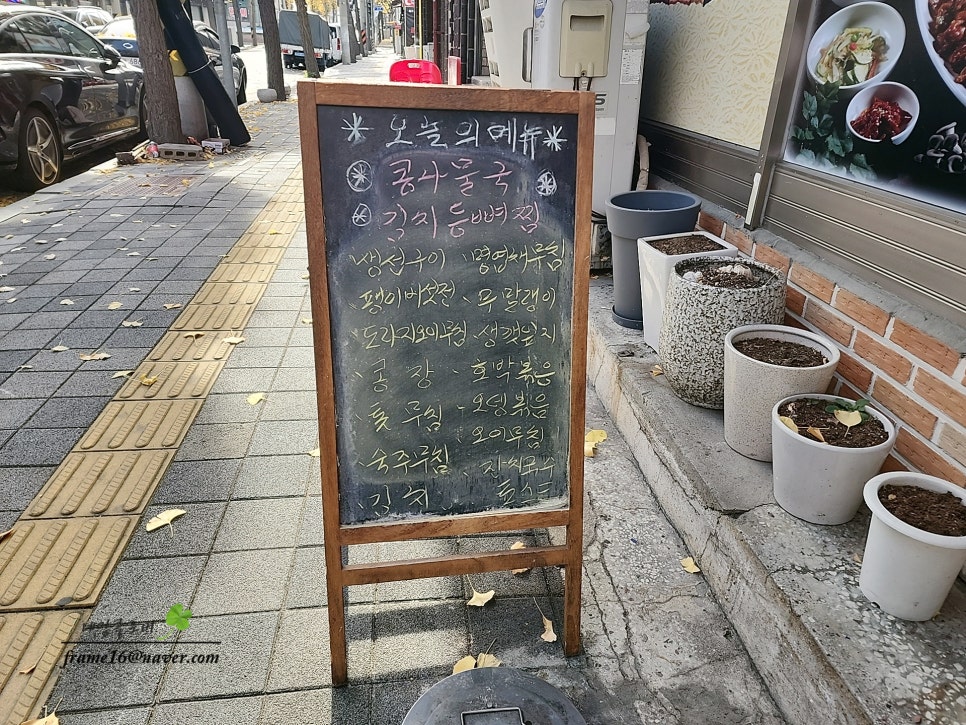 오늘의메뉴
콩나물국
김치등뼈찜
생선구이 명엽채무침
팽이버섯전 무말랭이
도라지오이무침 생깻잎지
호박볶음
오뎅볶음
오이무침
숙주무침 잔치국수
김치 토스트
frame16@naver.com